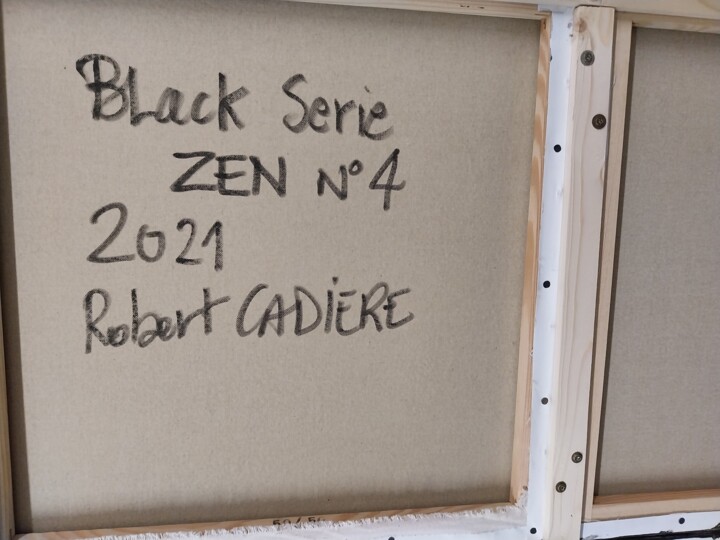 BLack Serie
ZEN N°4
2021
Robert CADiERE